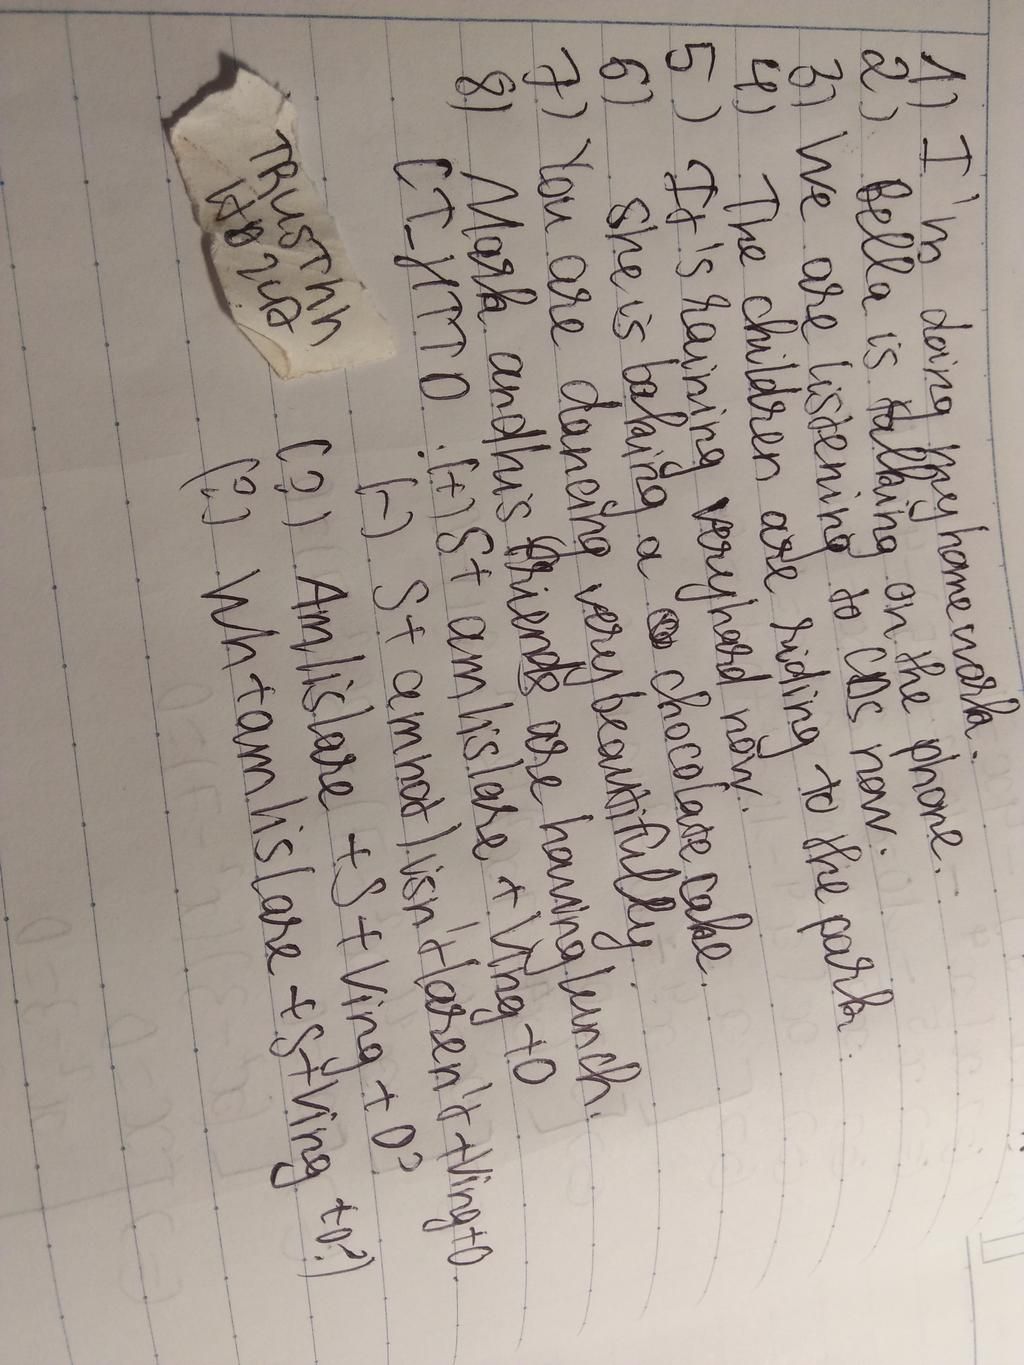 1) I'm doing my homework.
2) Bella is talking on the phone.
3) We are listening to CDs now.
4) The children are riding to the park.
5) It's raining very hard now.
6) She is baking a chocolate cake.
7) You are dancing very beautifully
8) Mark and his friends are having lunch.
(T-HTTD. (+) S+ am|is|are + Ving+O
(-) S+ amnot|isn't|aren't+Ving+O
(?) Am|is|are +S+Ving+O?
(?) Wh+am|is|are+S+Ving+O?)
TRUSTnn